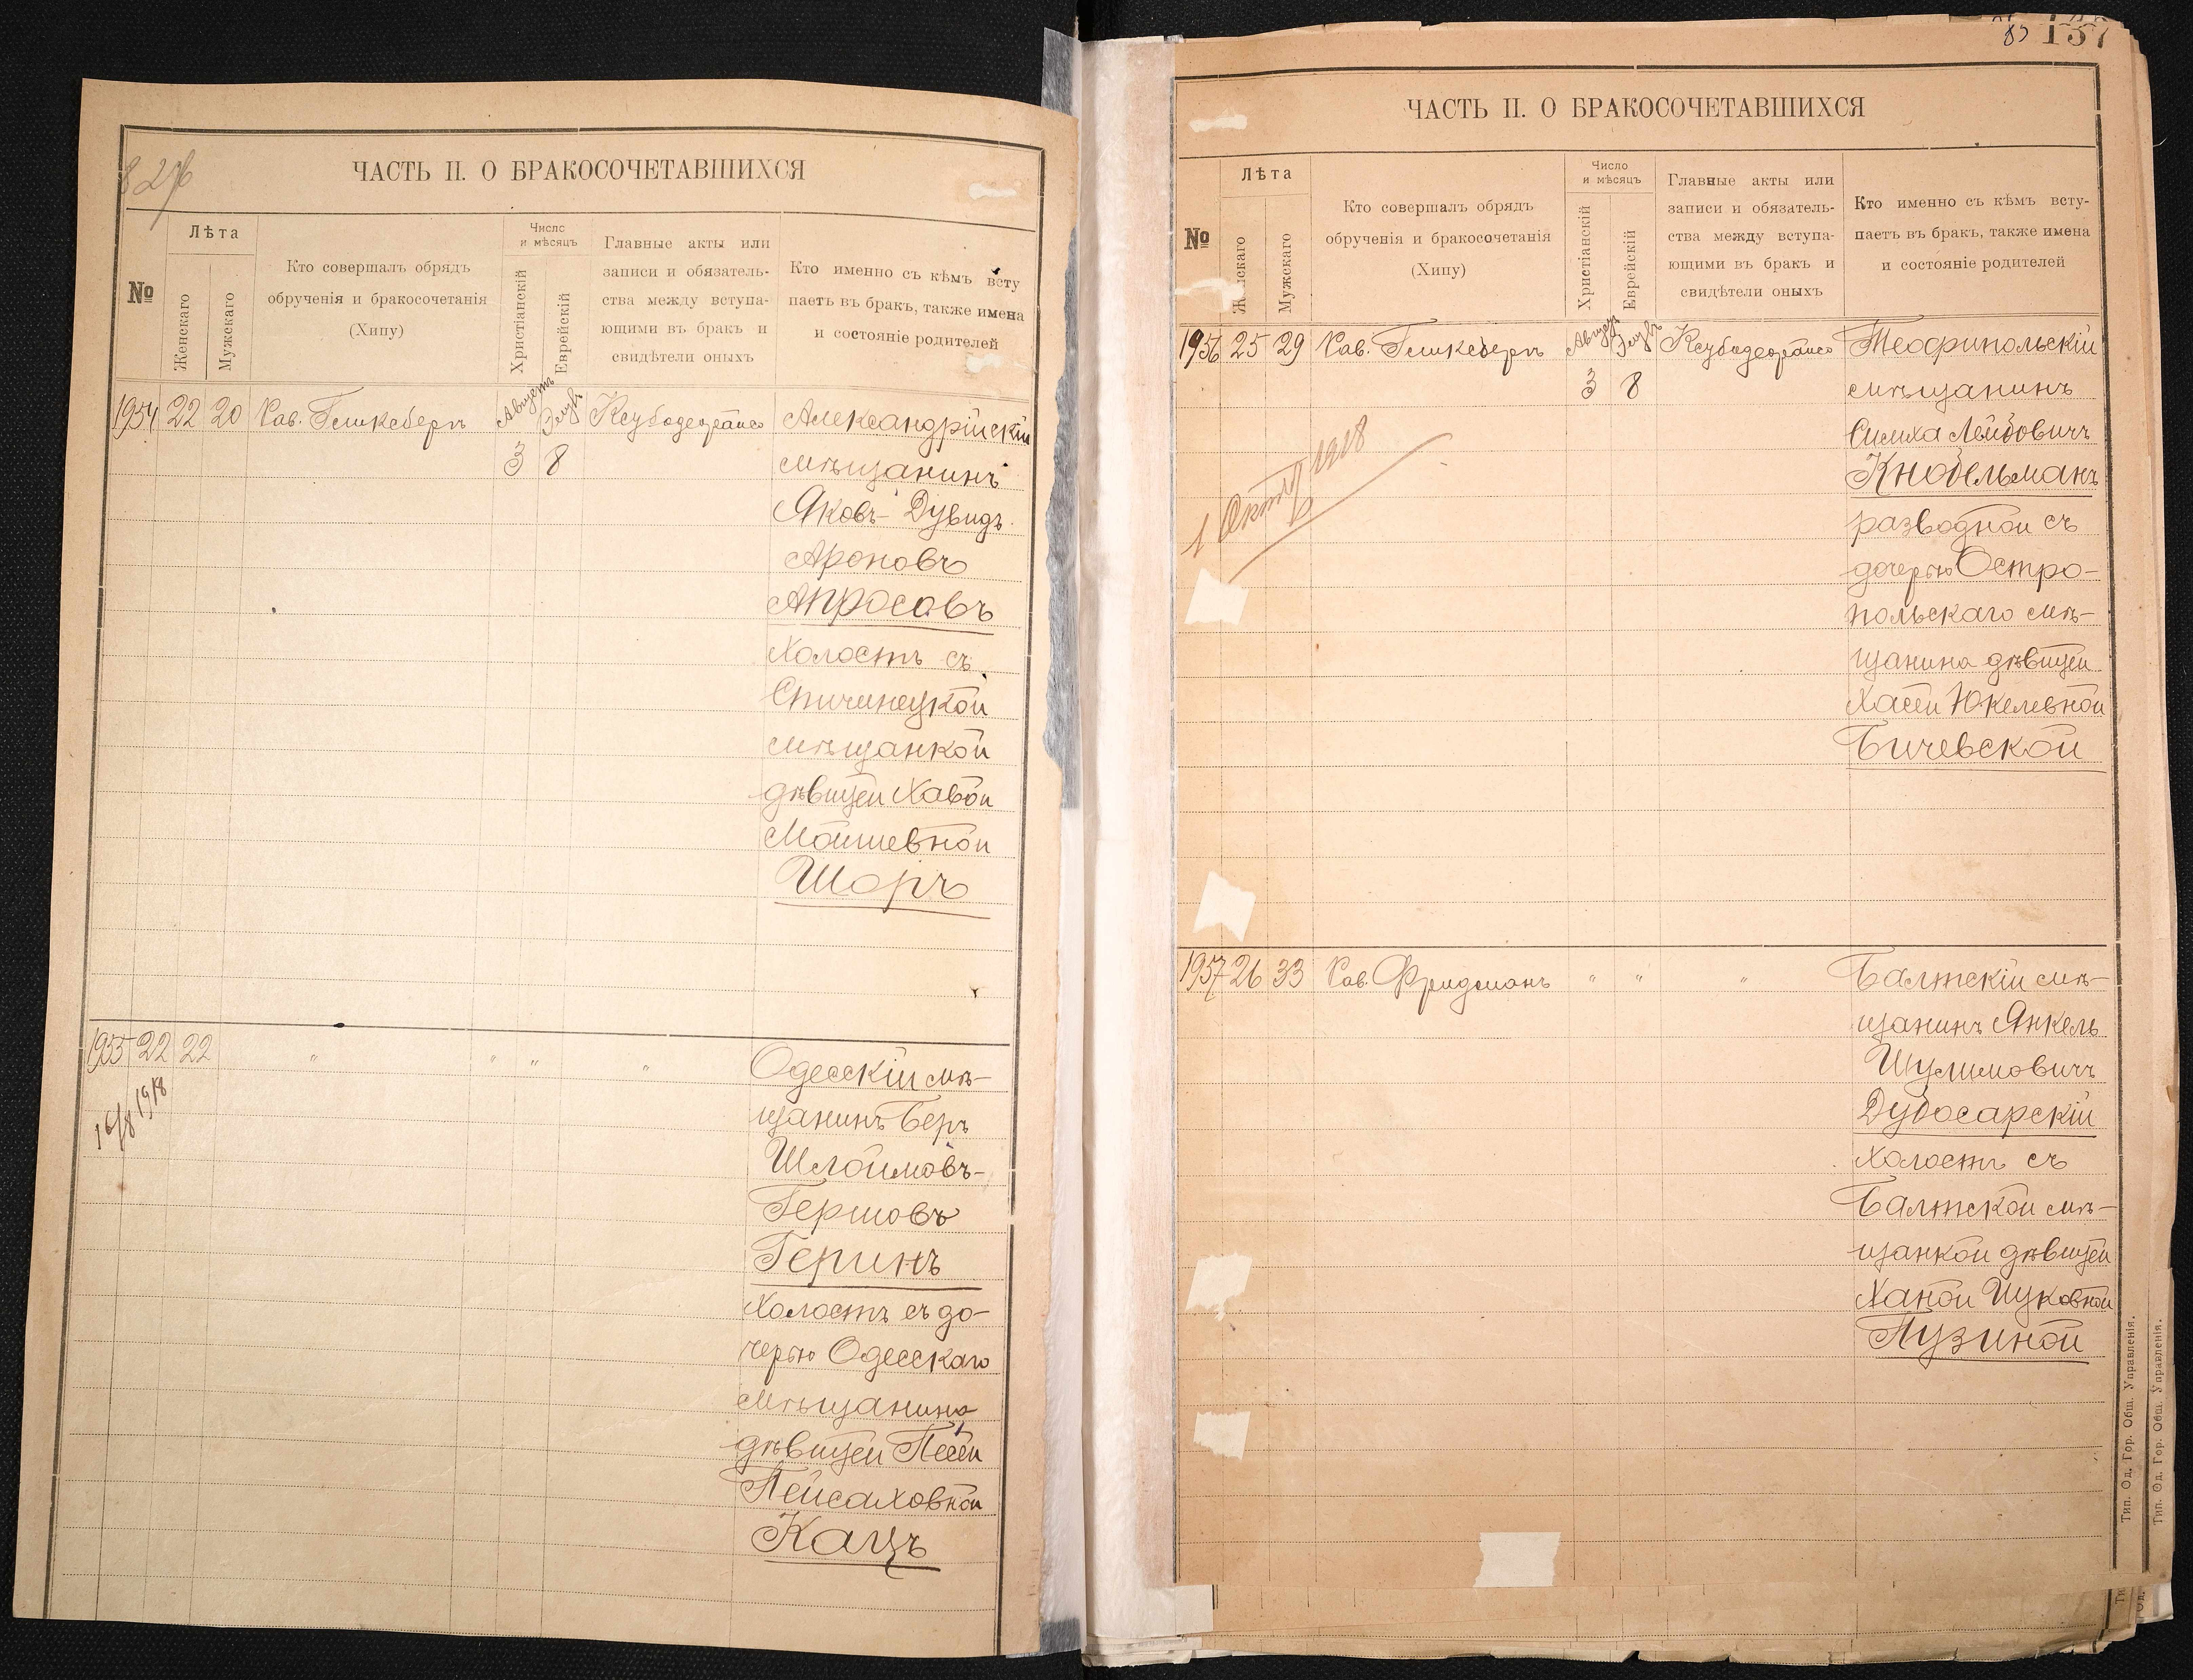 ЧАСТЬ II. О БРАКОСОЧЕТАВШИХСЯ
№
Лѣта
Женскаго
Мужскаго
Кто совершалъ обрядъ
обрученія и бракосочетанія
(Хипу)
Число
и мѣсяцъ
Христіанскій
Еврейскій
Главные акты или
записи и обязатель-
ства между вступа-
ющими въ бракъ и
свидѣтели оныхъ
Кто именно съ кѣмъ всту
паетъ въ бракъ, также имена
и состояніе родителей
1954 22 20 Рав. Гликсбергъ Августъ Элулъ Александрійскій
3 8 мѣщанинъ
Яковъ-Дувидъ
Ароновъ
Апросовъ
холостъ съ
Спичинецкой
мѣщанкой
дѣвицей Хавой
Мойшевной
Шоръ
1955 22 22 " " " " Одесскій мѣ-
16/8 1918
щанинъ Беръ
Шлоймовъ-
Гершовъ
Геринъ
холостъ съ до-
черью Одесскаго
мѣщанина
дѣвицей Песей
Пейсаховной
Кацъ
137
ЧАСТЬ II. О БРАКОСОЧЕТАВШИХСЯ
№
Лѣта
Женскаго
Мужскаго
Кто совершалъ обрядъ
обрученія и бракосочетанія
(Хипу)
Число
и мѣсяцъ
Христіанскій
Еврейскій
Главные акты или
записи и обязатель-
ства между вступа-
ющими въ бракъ и
свидѣтели оныхъ
Кто именно съ кѣмъ всту-
паетъ въ бракъ, также имена
и состояніе родителей
1956 25 29 Рав. Гликсбергъ Августъ Элулъ Теофипольскій
3 8 мѣщанинъ
Симха Лейбовичъ
Кнобельманъ
1918
разводной съ
дочерью Остро-
польскаго мѣ-
щанина дѣвицей
Хасей Юкелевной
Бичевской
1957 26 33 Рав. Фридманъ " " " Балтскій мѣ-
щанинъ Янкель
Шулимовичъ
Дубосарскій
холостъ съ
Балтской мѣ-
щанкой дѣвицей
Ханой Ицковной
Пузиной
Тип. Од. Гор. Общ. Управленія.
Тип. Од. Гор. Общ. Управленія.